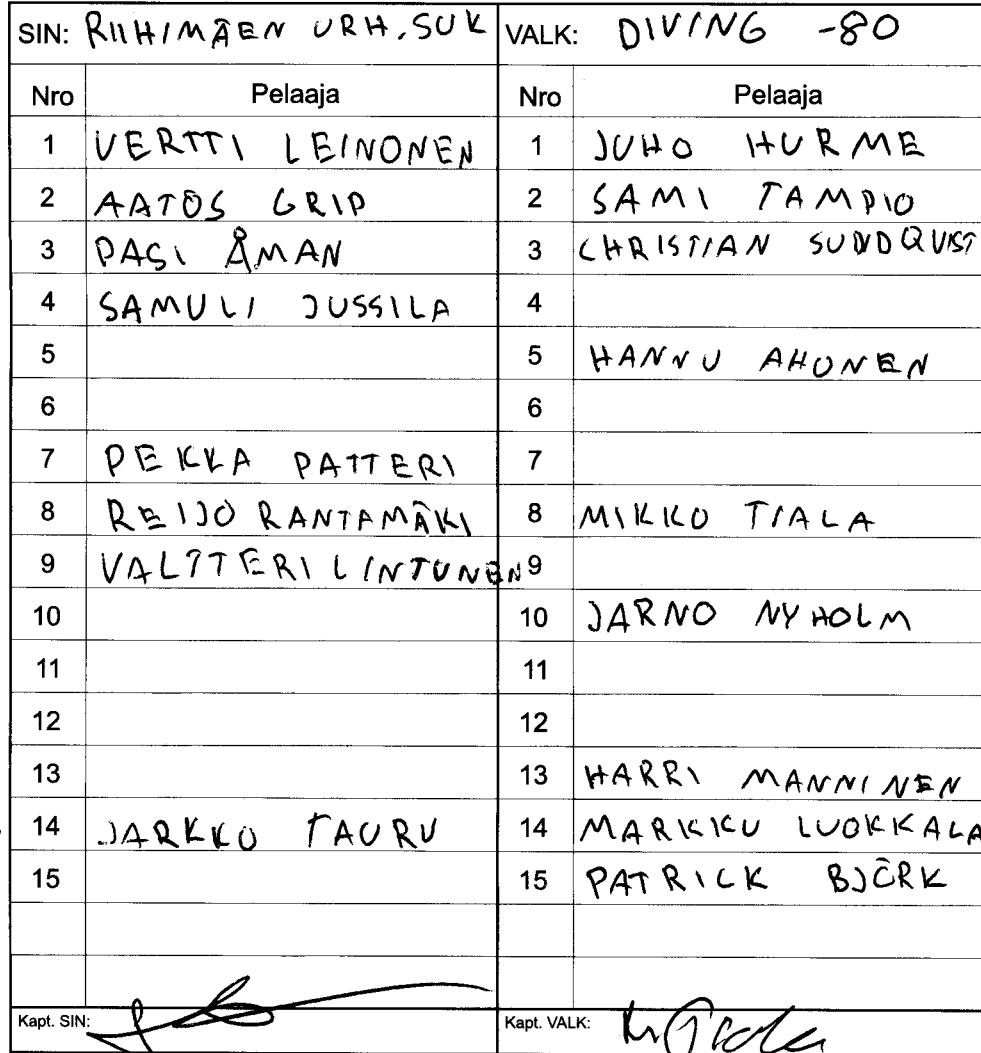 SIN: RIIHIMÄEN URH.SUK VALK: DIVING -80
Nro Pelaaja Nro Pelaaja
1 VERTTI LEINONEN 1 JUHO HURME
2 AATOS GRIP 2 SAMI TAMPIO
3 PASI ÅMAN 3 CHRISTIAN SUNDQVIST
4 SAMULI JUSSILA 4
5 5 HANNU AHONEN
6 6
7 PEKKA PATTERI 7
8 REIJO RANTAMÄKI 8 MIKKO TIALA
9 VALTTERI LINTUNEN 9
10 10 JARNO NYHOLM
11 11
12 12
13 13 HARRI MANNINEN
14 JARKKO TAURU 14 MARKKU LUOKKALA
15 15 PATRICK BJÖRK
Kapt. SIN: Kapt. VALK: